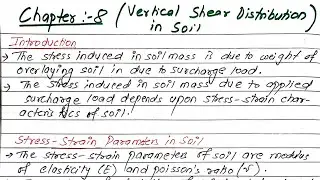 Chapter :- 8 (Vertical Shear Distribution)
in Soil
Introduction
→ The stress induced in soil mass is due to weight of
overlaying soil in due to surcharge load.
→ The stress induced in soil mass due to applied
surcharge load depends upon stress-strain char-
acteristics of soil.
Stress-Strain Parameters in Soil
→ The stress-strain parameters of soil are modulus
of elasticity (E) and poisson's ratio (r).